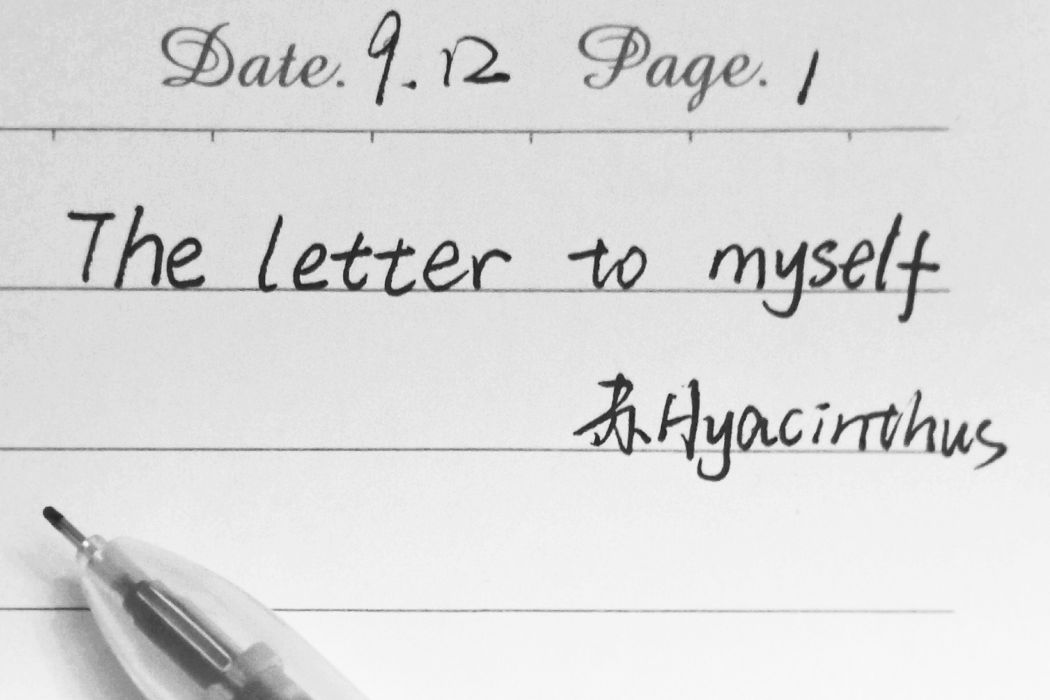 Date. 9.12 Page. 1
The letter to myself
苏Hyacinthus